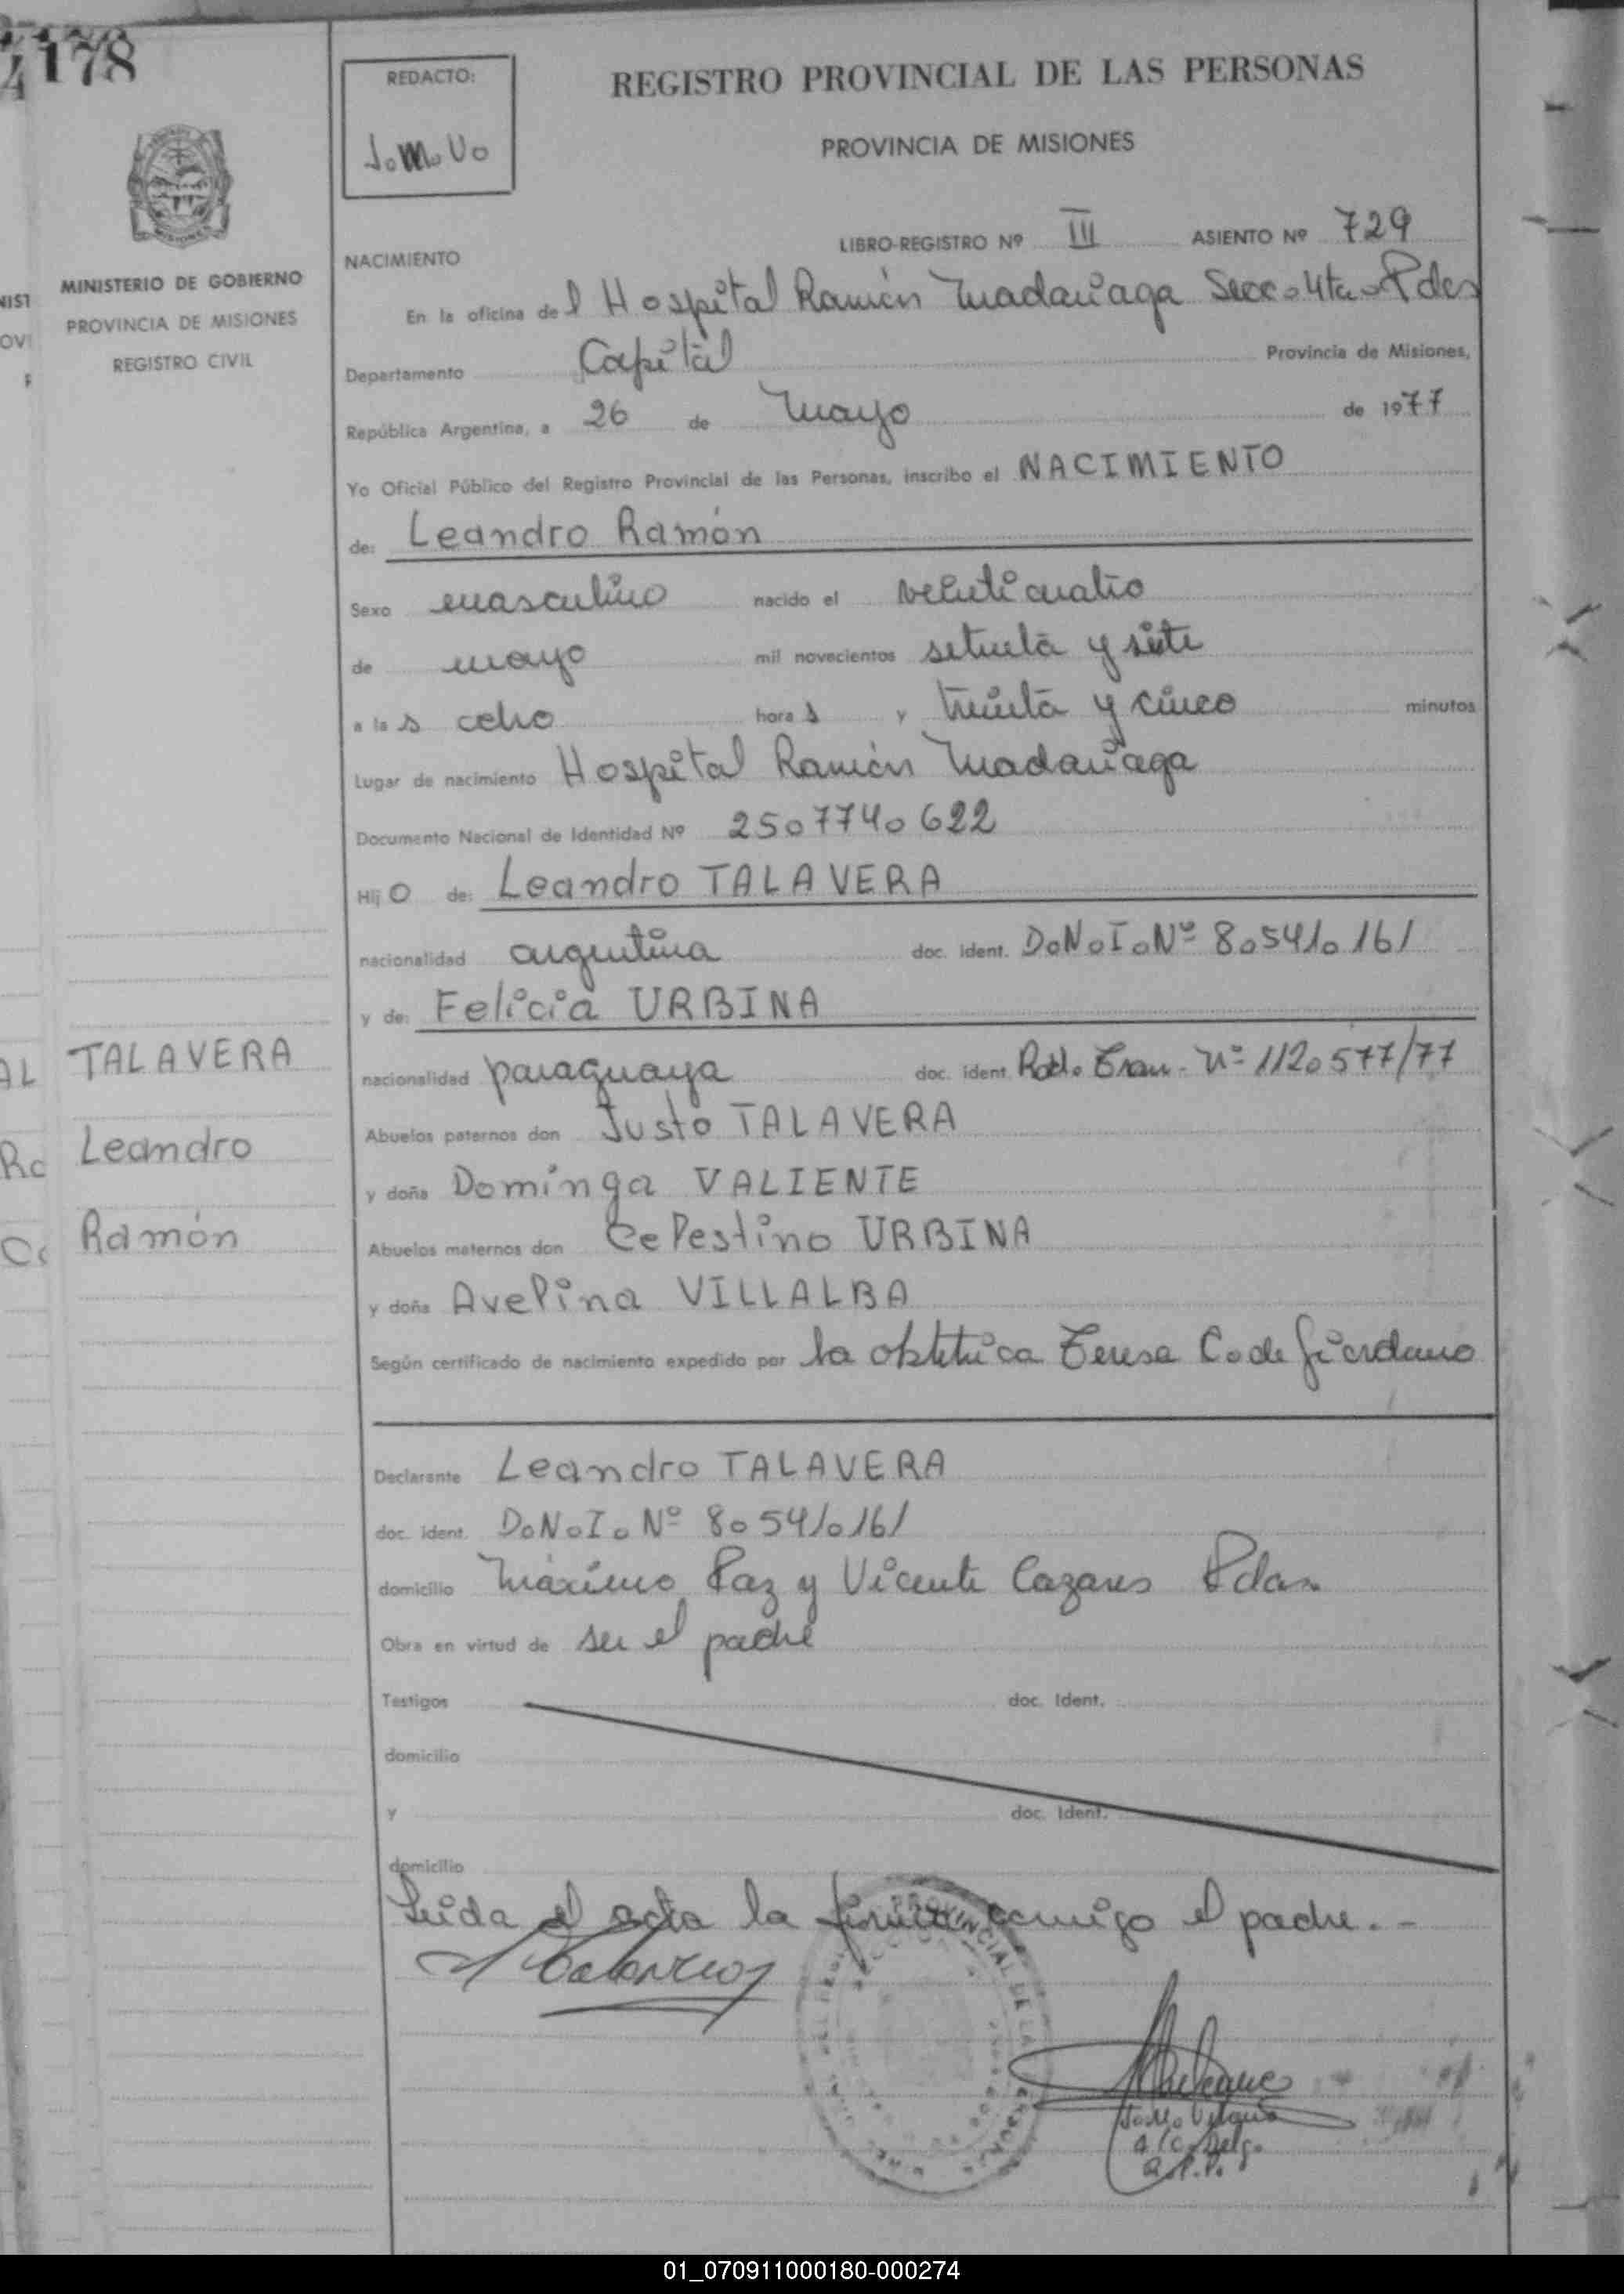 4178
REDACTO:
J.M.V.
REGISTRO PROVINCIAL DE LAS PERSONAS
PROVINCIA DE MISIONES
MISIONES
MINISTERIO DE GOBIERNO
PROVINCIA DE MISIONES
REGISTRO CIVIL
LIBRO-REGISTRO Nº III ASIENTO Nº 729
NACIMIENTO
En la oficina del Hospital Ramón Madariaga Secc. 4ta. Pdas
Departamento Capital Provincia de Misiones,
República Argentina, a 26 de Mayo de 1977
Yo Oficial Público del Registro Provincial de las Personas, inscribo el NACIMIENTO
de: Leandro Ramón
Sexo masculino nacido el veinticuatro
de mayo mil novecientos setenta y siete
a las ocho horas y treinta y cinco minutos
Lugar de nacimiento Hospital Ramón Madariaga
Documento Nacional de Identidad Nº 25.774.622
Hijo de: Leandro TALAVERA
nacionalidad argentina doc. ident. D.N.I. Nº 8.541.161
y de: Felicia URBINA
nacionalidad paraguaya doc. ident. Nº 112.577/77
TALAVERA
Leandro
Ramón
Abuelos paternos don Justo TALAVERA
y doña Dominga VALIENTE
Abuelos maternos don Celestino URBINA
y doña Avelina VILLALBA
Según certificado de nacimiento expedido por la obstetrica Teresa C. de Giordano
Declarante Leandro TALAVERA
doc. ident. D.N.I. Nº 8.541.161
domicilio Máximo Paz y Vicente Cazares Pdas.
Obra en virtud de ser el padre
Testigos doc. Ident.
domicilio
y doc. Ident.
domicilio
Leida el acta la firma conmigo el padre.-
PROVINCIAL DE LA
a/c. Delg.
01_070911000180-000274